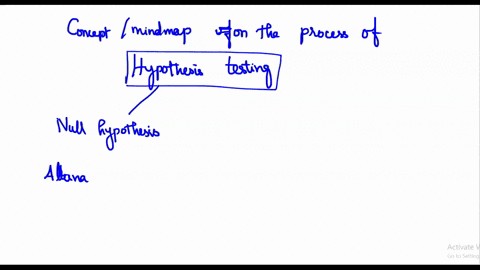 Concept / mindmap on the process of
Hypothesis testing
Null hypothesis
Activate W
Go to Setting